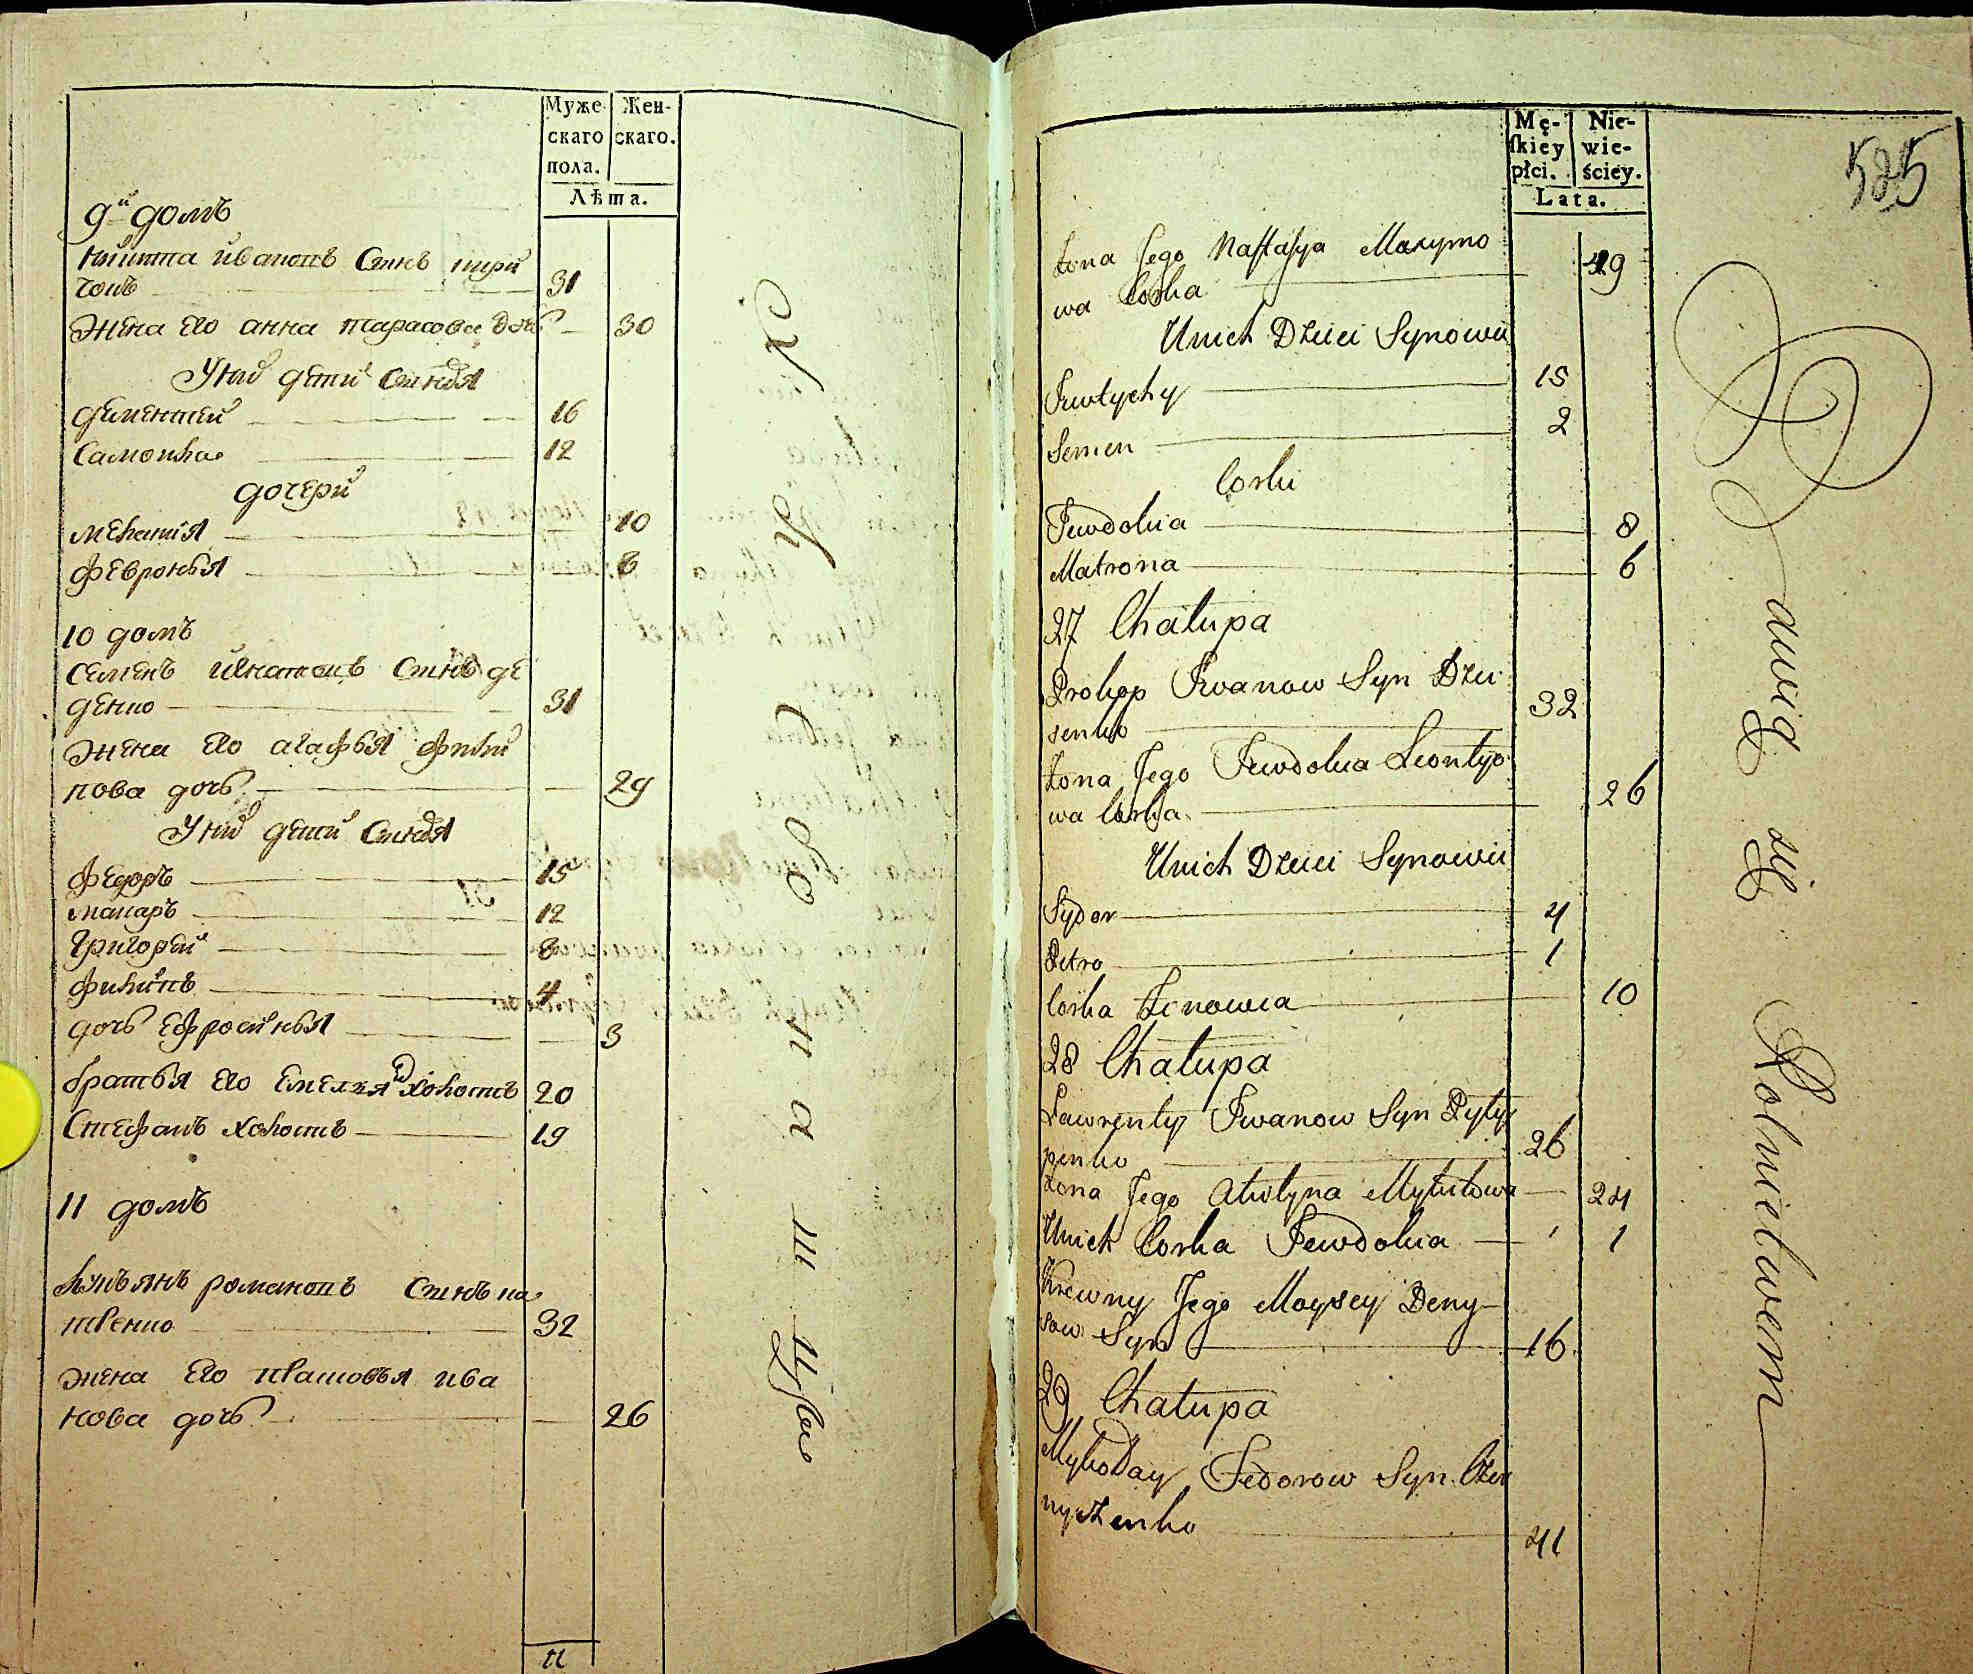 Муже-
скаго
пола.
Жен-
скаго.
Лѣта.
9й домъ
Никита Ивановъ Сынъ
31
Жена его анна тарасова дочь 30
У них дети Сыновя
Дементей 16
Самойла 12
дочери
Меланія 10
Февронья 8
10 домъ
Семенъ Игнатовъ Сынъ де
денко 31
Жена его агафья Фили
пова дочь 29
У них дети Сыновя
Федоръ 15
Макаръ 12
Григорей 8
Филипъ 4
дочь Ефросинья 3
братья его Емельян холостъ 20
Стефанъ холостъ 19
11 домъ
Лукъянъ романовъ Сынъ
32
жена его ива
нова дочь 26
11
Mę-
ſkiey
płci.
Nie-
wie-
ściey.
Lata.
525
Żona Jego Naſtaſya Maxymo
wa Corka 29
Unich Dzieci Synowie
Jewtychy 15
Semen 2
Corki
Jewdokia 8
Matrona 6
27 Chałupa
Prokop Jwanow Syn Dzei
senko 32
Żona Jego Jewdokia Leontyo
wa Corka 26
Unich Dzieci Synowie
Sydor 4
Petro 1
Corka Zenowia 10
28 Chałupa
Lawrenty Jwanow Syn Pyly
penko 26
Żona Jego Akilyna Mykitowa 24
Unich Corka Jewdokia 1
Krewny Jego Moysey Deny
sow Syn 16
29 Chałupa
Mykołay Fedorow Syn Cze
nyszenko 41
Bawią się Rolnictwem